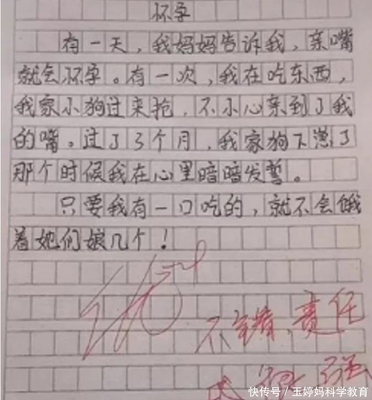 怀孕
有一天，我妈妈告诉我，亲嘴
就会怀孕。有一次，我在吃东西，
我家小狗过来抢，不小心亲到了我
的嘴。过了3个月，我家狗下崽了
那个时候我在心里暗暗发誓。
只要我有一口吃的，就不会饿
着她们娘几个！
优
不错、责任
快传号 / 玉婷妈科学教育